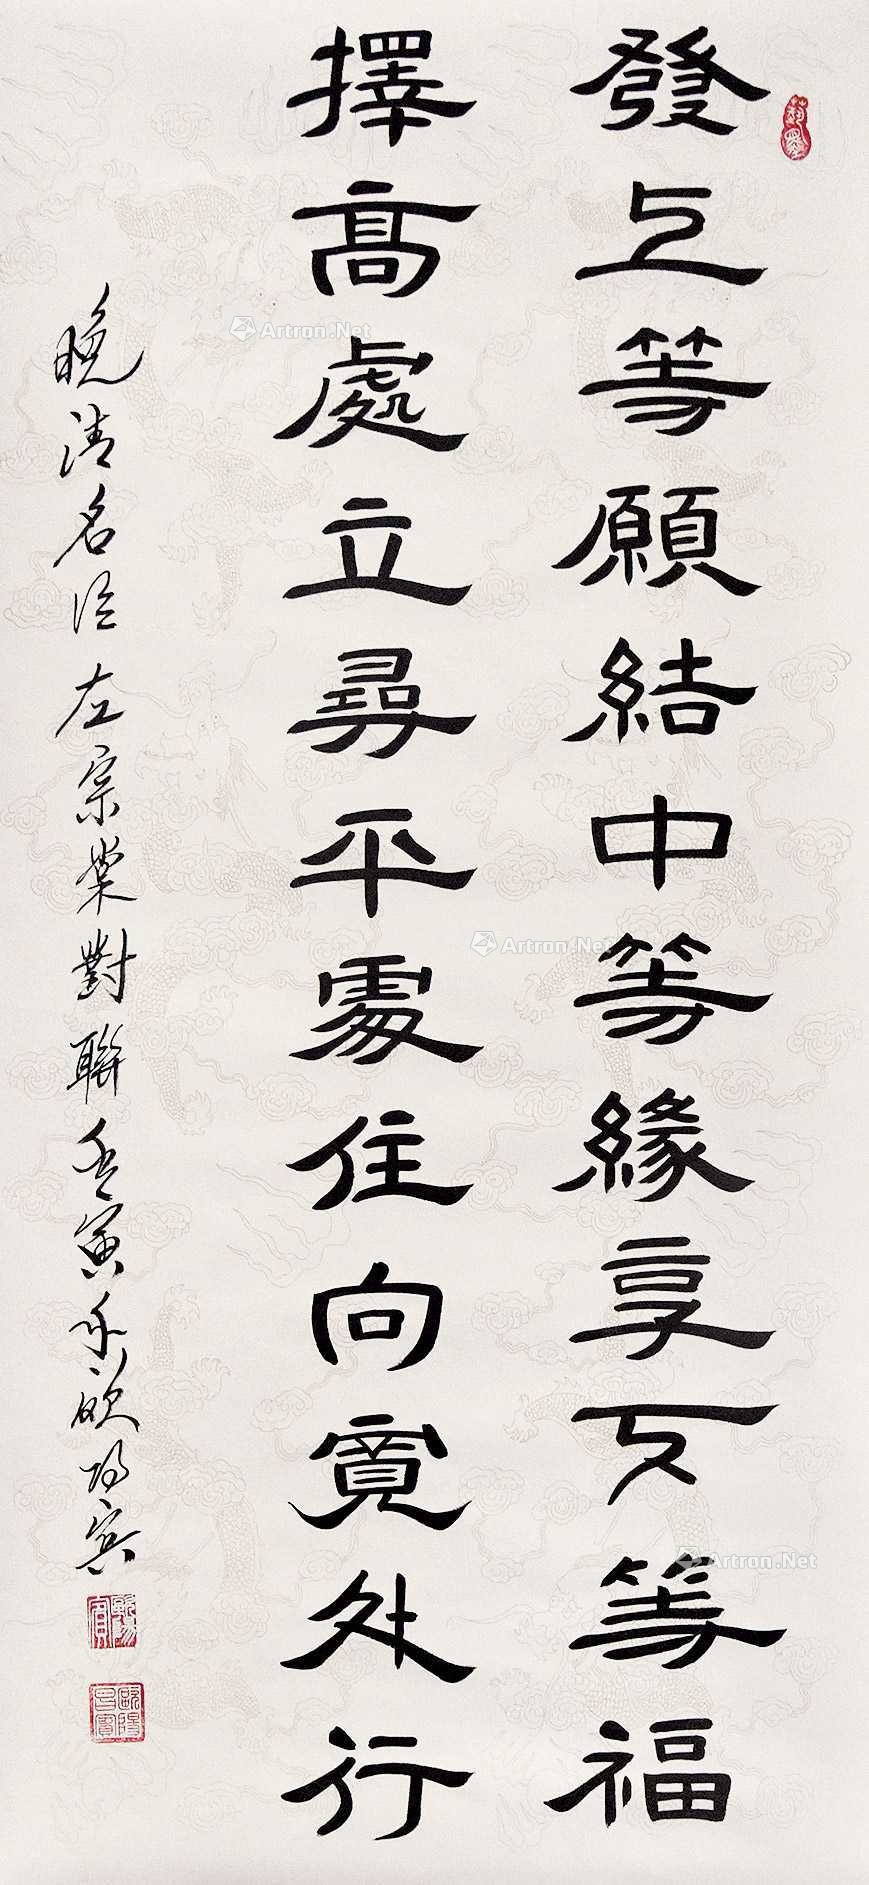 發上等願結中等緣享下等福
擇高處立尋平處住向寬处行
晚清名臣左宗棠對聯壬寅年欧阳宾
Artron.Net
Artron.Net
Artron.Net